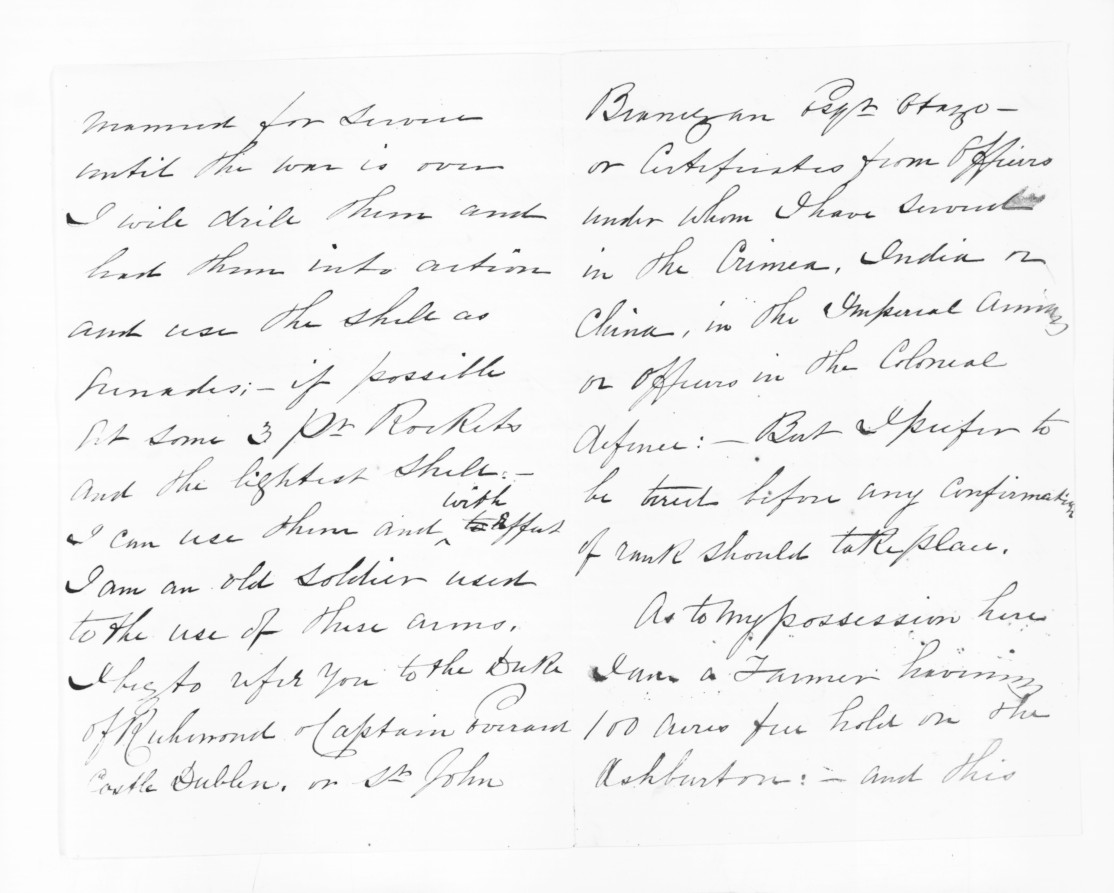 manned for service
until the war is over
I will drill them and
lead them into action
and use the shell as
Grenades; – if possible
Get some 3 Pr Rockets
and the lightest Shell: –
I can use them and with effect
I am an old soldier used
to the use of these arms.
I beg to refer you to the Duke
of Richmond Captain Everard
Castle Dublin. or St John
Branigan Esqr Otago –
or Certificates from Officers
under whom I have served
in the Crimea, India or
China, in the Imperial Army
or Officers in the Colonial
defence: – But I prefer to
be tried before any confirmation
of rank should take place.
As to my possession here
I am a Farmer having
100 acres free hold on the
Ashburton: – and this